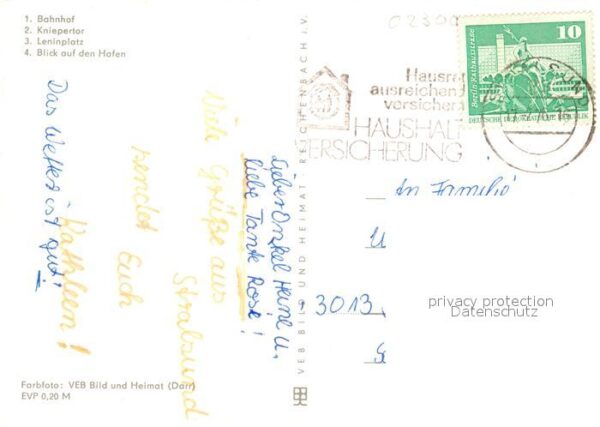 1. Bahnhof
2. Kniepertor
3. Leninplatz
4. Blick auf den Hafen
02300
Hausrat
ausreichend
versichern
HAUSHALT
VERSICHERUNG
10
Berlin, Rathausstraße
DEUTSCHE DEMOKRATISCHE REPUBLIK
Lieber Onkel Heinz u.
liebe Tante Rose!
Viele Grüße aus
Stralsund
sendet Euch
Kathleen!
Das Wetter ist gut!
An Familie
3013
privacy protection
Datenschutz
VEB BILD UND HEIMAT REICHENBACH i.V.
Farbfoto: VEB Bild und Heimat (Darr)
EVP 0,20 M